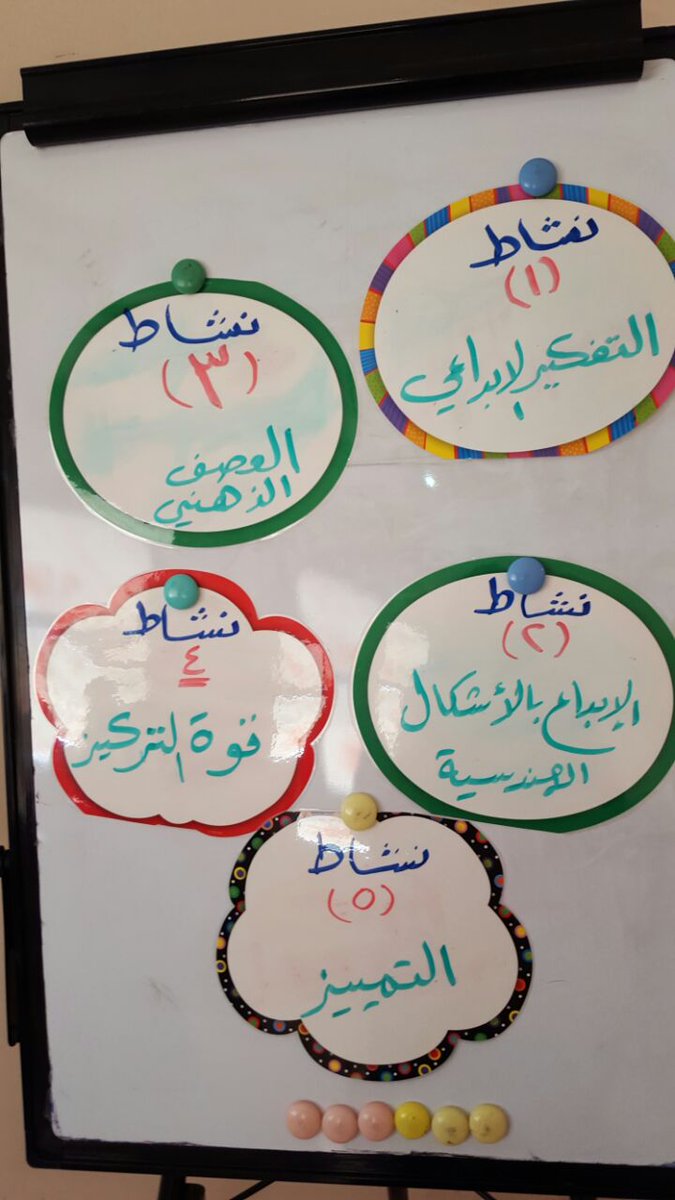 نشاط
(١)
التفكير الابداعي
نشاط
(٢)
الإبداع بالأشكال
الهندسية
نشاط
(٣)
العصف
الذهني
نشاط
٤
قوة التركيز
نشاط
(٥)
التمييز